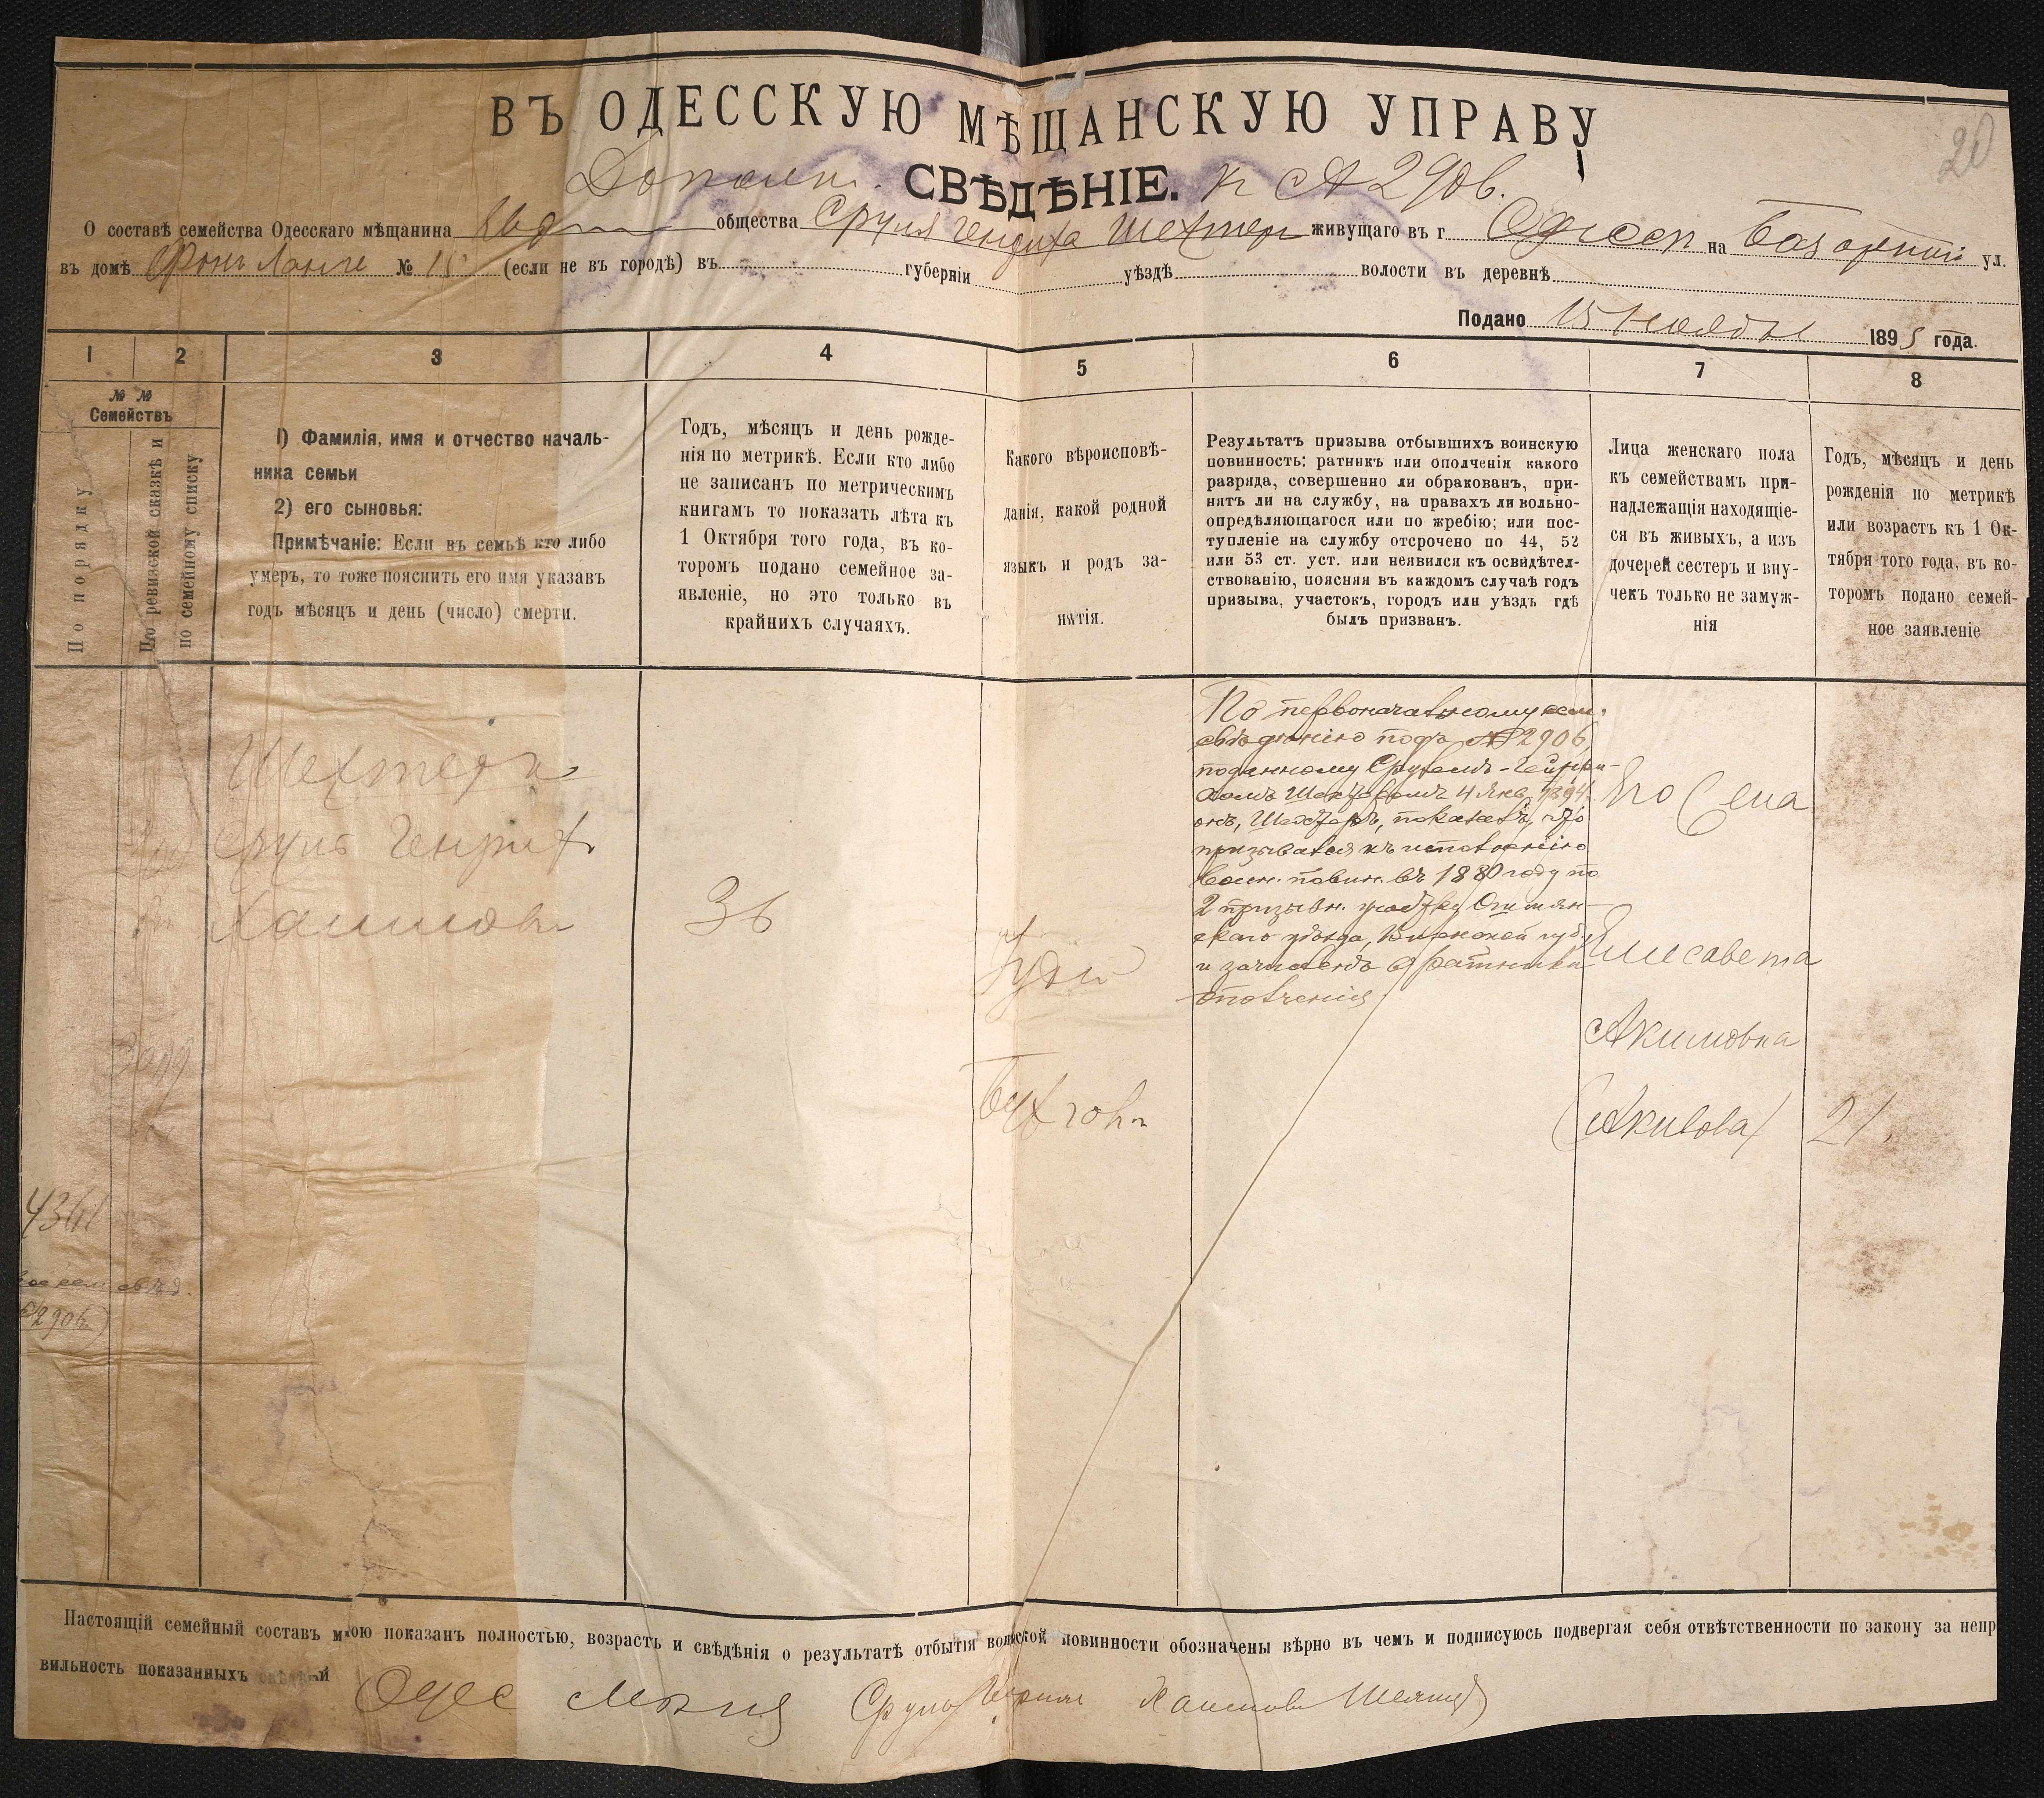 20
ВЪ ОДЕССКУЮ МѢЩАНСКУЮ УПРАВУ
Дополн. СВѢДѢНІЕ. къ № 2906.
О составѣ семейства Одесскаго мѣщанина общества Сруля Генриха Шехтеръ живущаго въ г. Одессѣ на Базарной ул.
въ домѣ Фонъ Ланге № 15 (если не въ городѣ) въ губерніи уѣздѣ волости въ деревнѣ
Подано 15 Ноября 1895 года.
1 2 3 4 5 6 7 8
№ № Семействъ
По порядку
По ревизской сказкѣ и
по семейному списку
1) Фамилія, имя и отчество началь-
ника семьи
2) его сыновья:
Примѣчаніе: Если въ семьѣ кто либо
умеръ, то тоже пояснить его имя указавъ
годъ мѣсяцъ и день (число) смерти.
Годъ, мѣсяцъ и день рожде-
нія по метрикѣ. Если кто либо
не записанъ по метрическимъ
книгамъ то показать лѣта къ
1 Октября того года, въ ко-
торомъ подано семейное за-
явленіе, но это только въ
крайнихъ случаяхъ.
Какого вѣроисповѣ-
данія, какой родной
языкъ и родъ за-
нятія.
Результатъ призыва отбывшихъ воинскую
повинность: ратникъ или ополченія какого
разряда, совершенно ли обракованъ, при-
нятъ ли на службу, на правахъ ли вольно-
опредѣляющагося или по жребію; или пос-
тупленіе на службу отсрочено по 44, 52
или 53 ст. уст. или неявился къ освидѣтел-
ствованію, поясняя въ каждомъ случаѣ годъ
призыва, участокъ, городъ или уѣздъ гдѣ
былъ призванъ.
Лица женскаго пола
къ семействамъ при-
надлежащія находящіе-
ся въ живыхъ, а изъ
дочерей сестеръ и вну-
чекъ только не замуж-
нія
Годъ, мѣсяцъ и день
рожденія по метрикѣ
или возрастъ къ 1 Ок-
тября того года, въ ко-
торомъ подано семей-
ное заявленіе
Шехтеръ
Сруль Генрих
Хаимовъ
36
Іудей
Бухгон
По первоначальному сем.
свѣдѣнію подъ № 2906,
поданному Срулемъ-Генри-
хомъ Шехтеромъ 4 Янв. 1894
онъ, Шехтеръ, показалъ, что
призывался къ исполненію
воин. повин. въ 1880 году по
2 призывн. участку Ошмян-
скаго уѣзда, Виленской губ.
и зачисленъ въ ратники
ополченія
Его Сена
Елисавета
Акимовна
(Акивова) 21.
4361
сем свѣд.
№ 2906.)
Настоящій семейный составъ мною показанъ полностью, возрастъ и свѣдѣнія о результатѣ отбытія воинской повинности обозначены вѣрно въ чемъ и подписуюсь подвергая себя отвѣтственности по закону за непр
вильность показанныхъ свѣдѣній
Одес Мѣщ Сруль Генрих Хаимовъ Шехтеръ